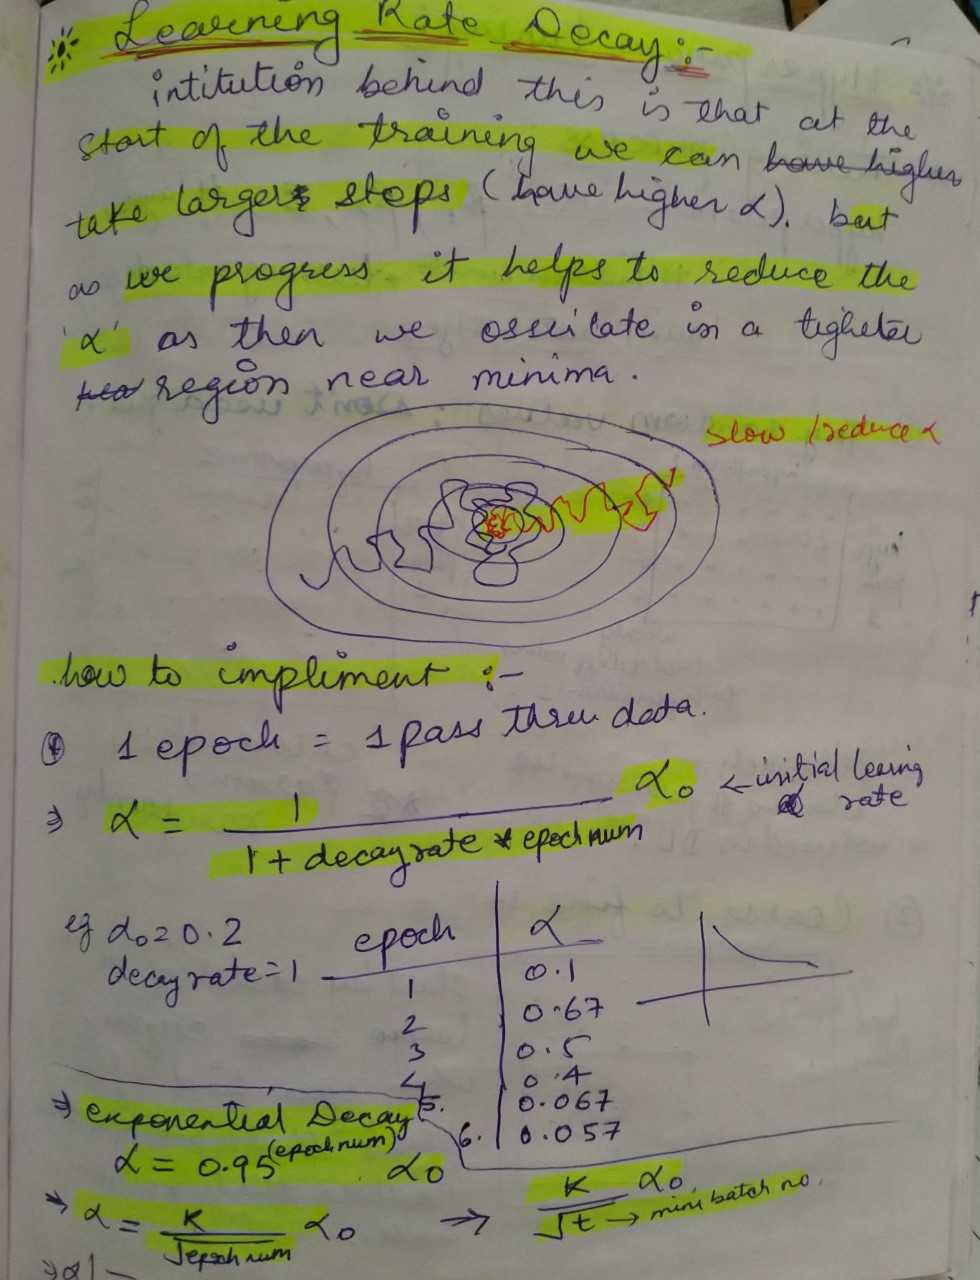 Learning Rate Decay:-
intitution behind this is that at the
start of the training we can have higher
take larger steps (have higher α). but
as we progress it helps to reduce the
'α' as then we osscilate in a tigheter
region near minima.
slow / reduce α
how to impliment :-
1 epoch = 1 pass thru data.
⇒ α = 1 / (1 + decay rate * epoch num) α₀ ← initial learing rate
eg α₀ = 0.2
decay rate = 1
epoch | α
1 | 0.1
2 | 0.67
3 | 0.5
4 | 0.4
5. | 0.067
6. | 0.057
⇒ exponential Decay
α = 0.95^(epoch num) α₀
→ α = K / √epoch num α₀ ⇒ K / √t α₀. → mini batch no.